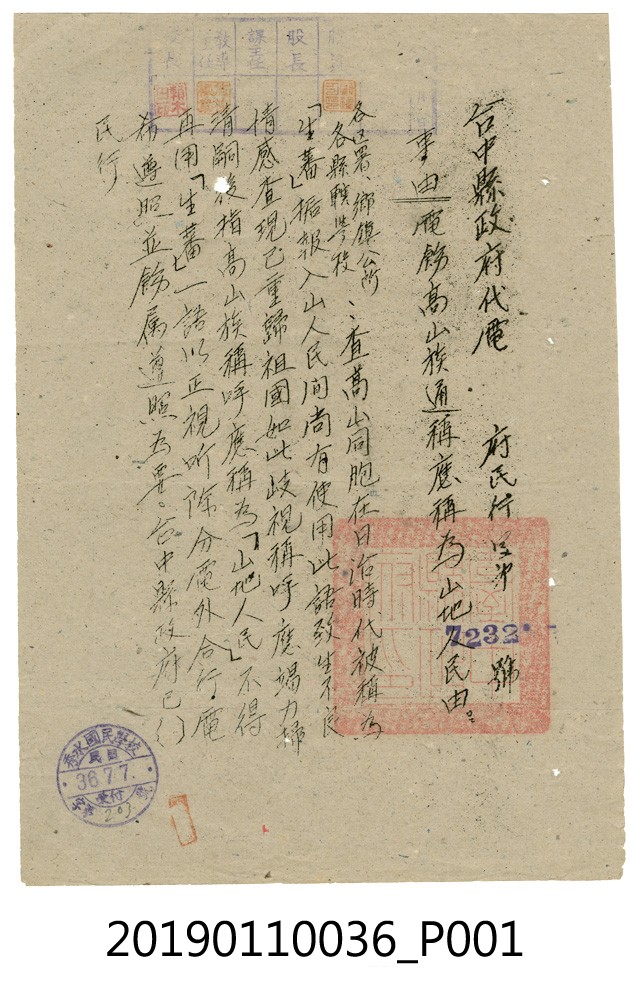 台中縣政府代電 府民行字第7232號
事由電飭高山族通稱應稱為山地人民由
各區署、鄉鎮公所
各縣轄學校
:查高山同胞在日治時代被稱為
「生蕃」据報入山人民間尚有使用此語致生不良
情感查現已重歸祖國如此歧視稱呼應竭力掃
清嗣後指高山族稱呼應稱為「山地人民」不得
再用「生蕃」一語以正視听除分電外合行電
希遵照並飭属遵照為要:台中縣政府已( )
民行
股長
課主任
秀水國民學校
36.7.7.
受付
203
20190110036_P001